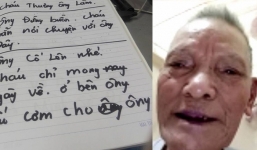 cháu Thương ông Lắm.
ông Đừng buồn. cháu
nói chuyện với ông
ông Cố Lên nhé.
cháu chỉ mong
ngày về. ở bên ông
cơm cho ông